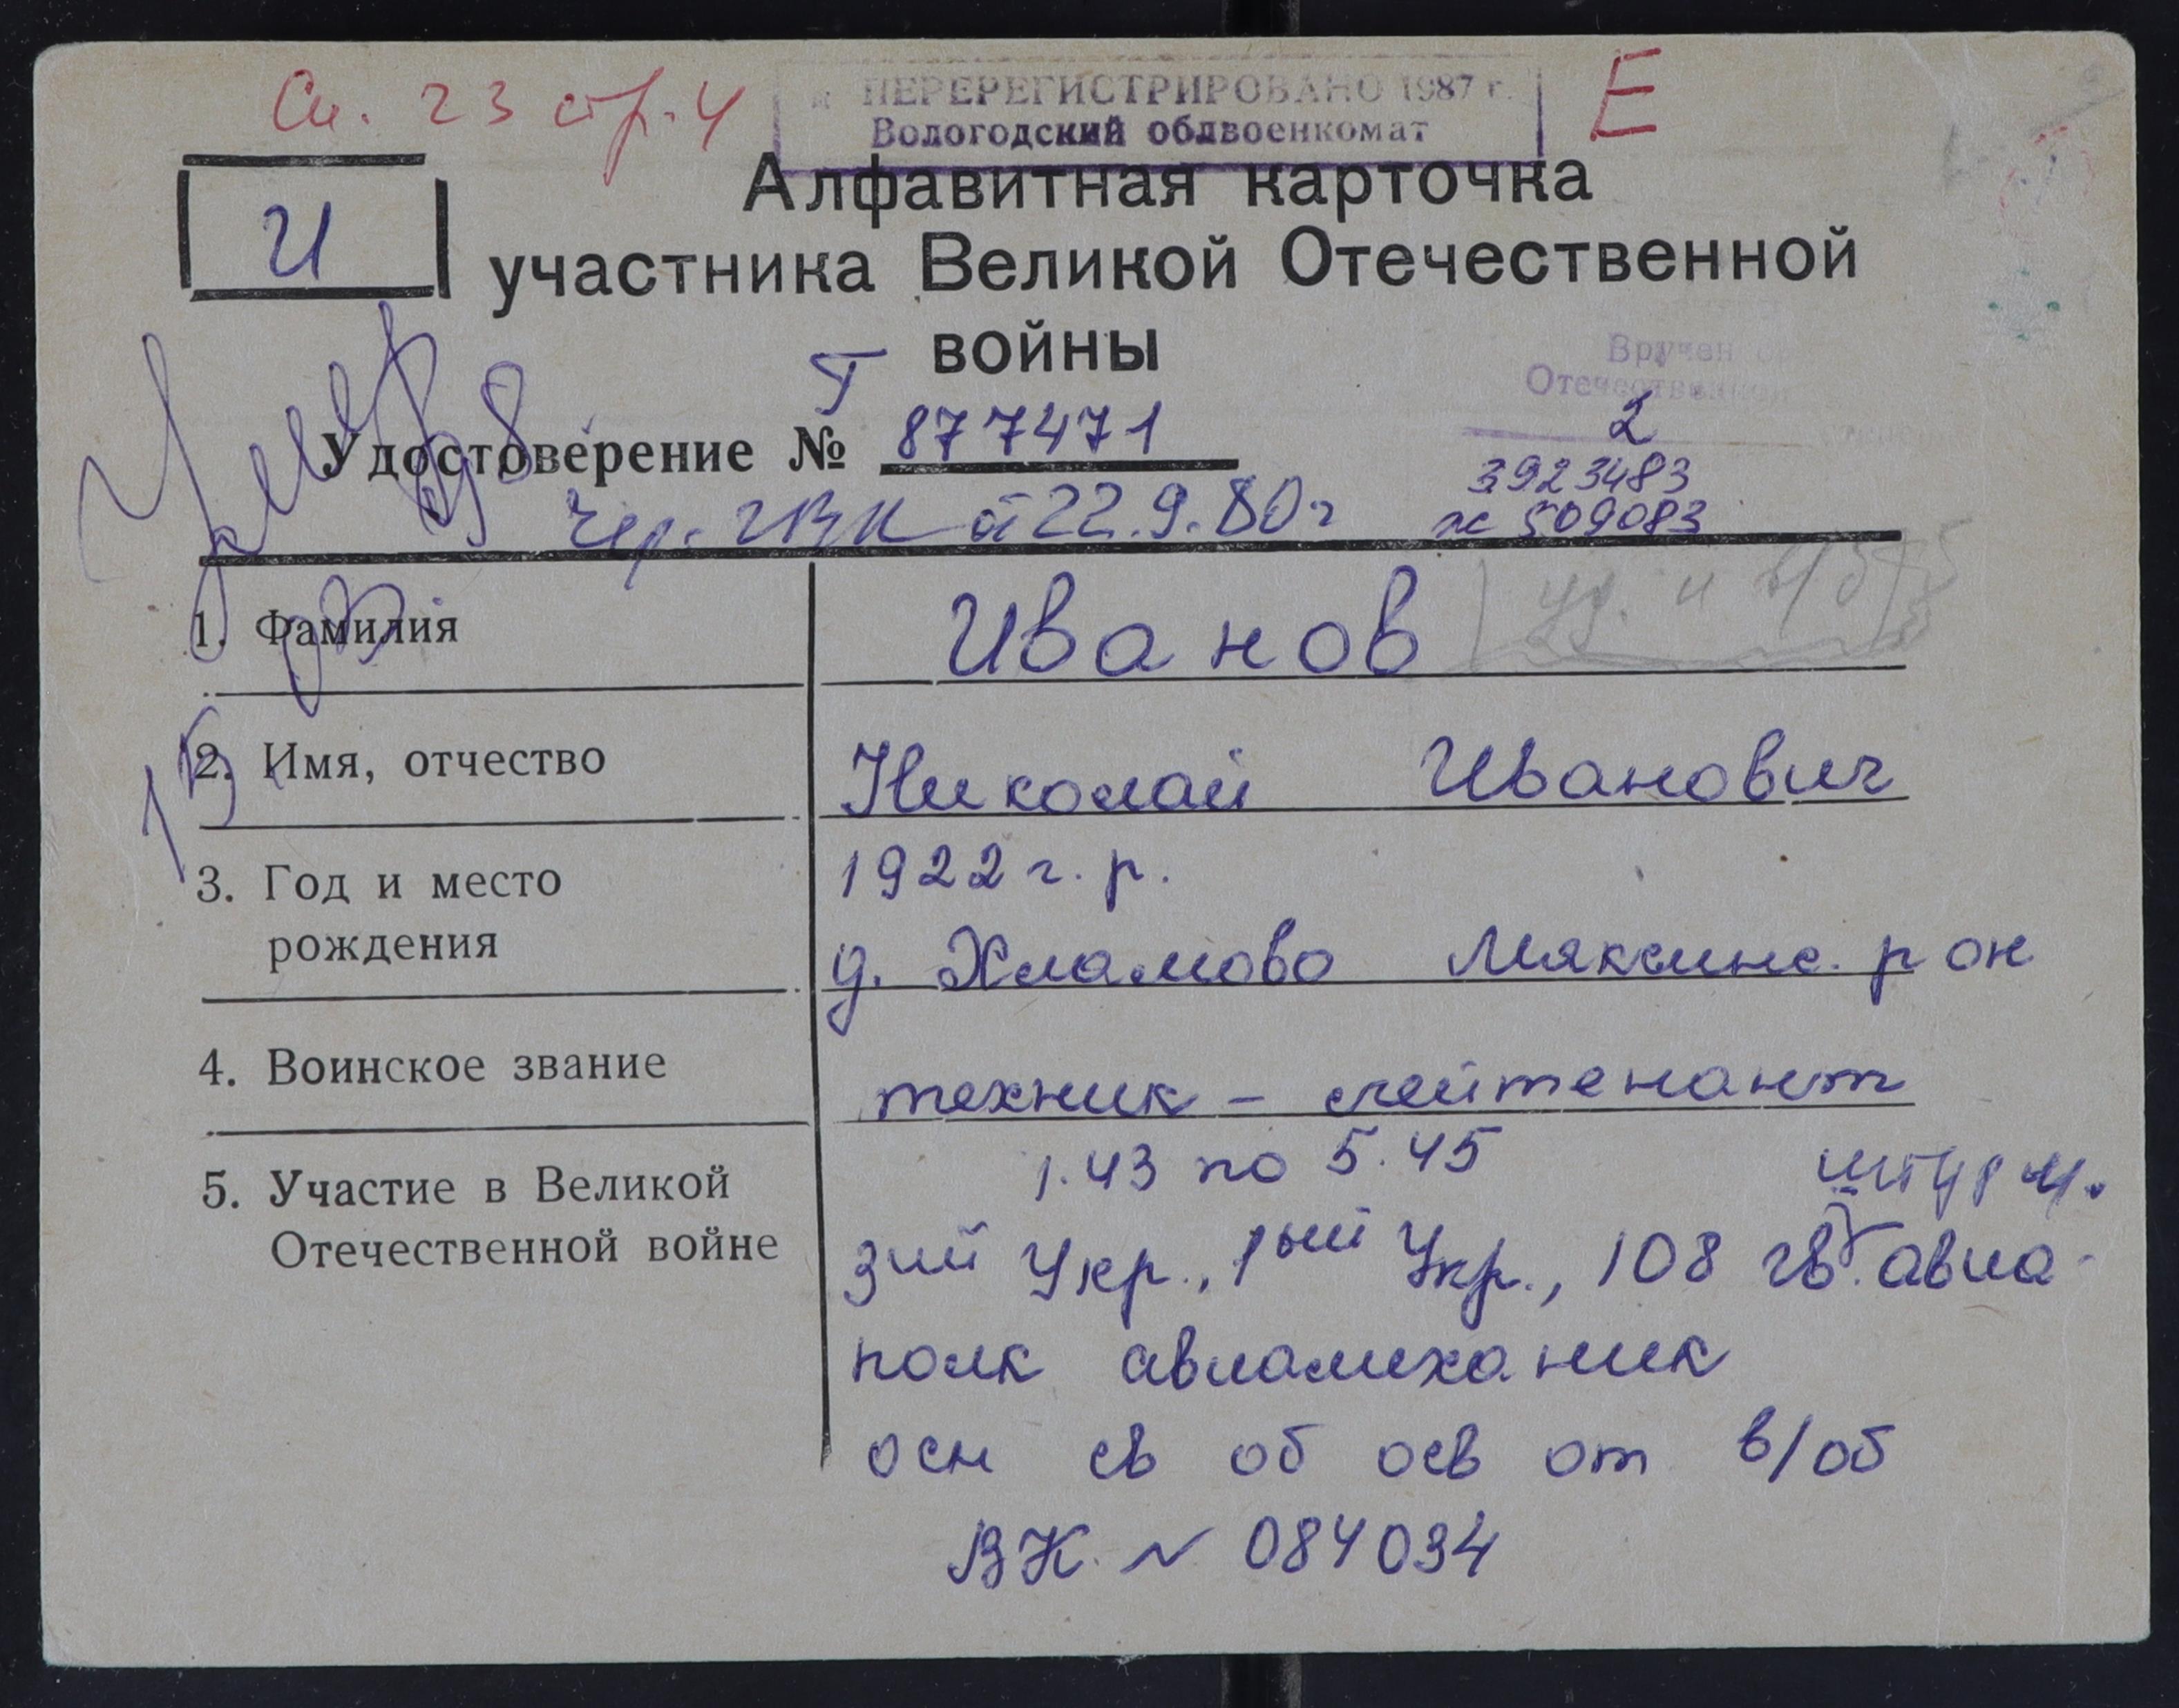 Сп. 23 стр. 4
ПЕРЕРЕГИСТРИРОВАНО 1987 г.
Вологодский облвоенкомат
Е
И
Алфавитная карточка
участника Великой Отечественной
войны
Вручен
Отечественной
2
3923483
509083
Удостоверение № Г 877471
Чер. ГВК от 22.9.80 г
1. Фамилия
Иванов
2. Имя, отчество
Николай Иванович
3. Год и место
рождения
1922 г. р.
д. Хламово Мяксинс. р он
4. Воинское звание
техник – лейтенант
5. Участие в Великой
Отечественной войне
1.43 по 5.45
штурм.
3ий Укр., 1ый Укр., 108 гв. авиа-
полк авиамеханик
осн св об осв от в/об
ВК N 084034